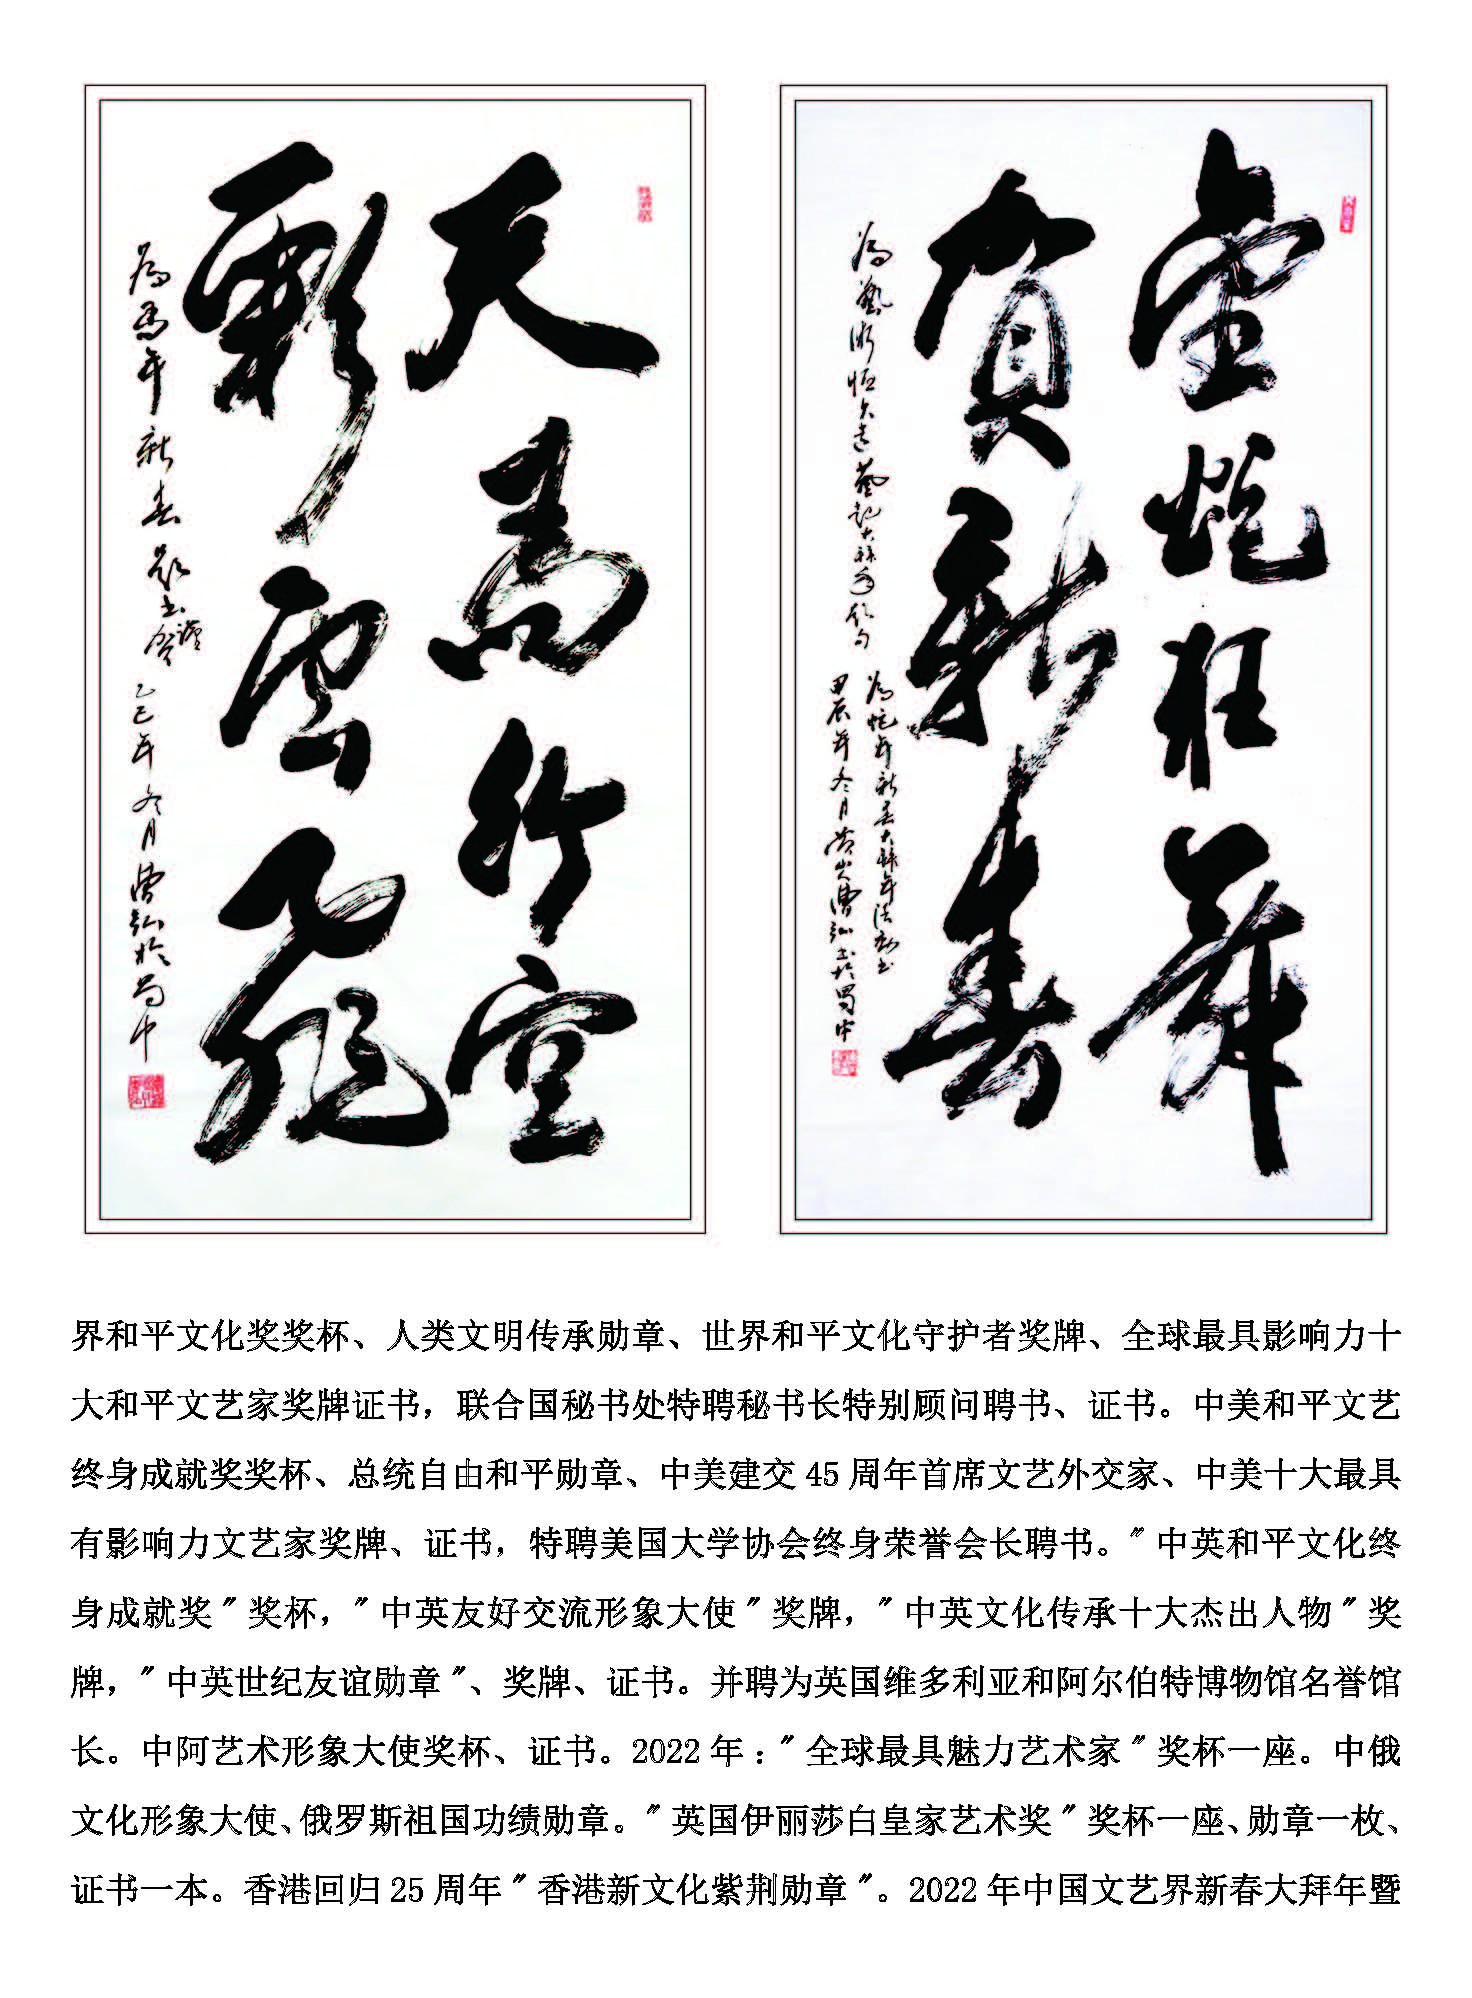 天马行空
彩云飞
为马年新春题书谨贺
乙巳年冬月曹弘于蜀中
金蛇狂舞
贺新春
甲辰年冬月黄炎曹弘书于蜀中
界和平文化奖奖杯、人类文明传承勋章、世界和平文化守护者奖牌、全球最具影响力十
大和平文艺家奖牌证书，联合国秘书处特聘秘书长特别顾问聘书、证书。中美和平文艺
终身成就奖奖杯、总统自由和平勋章、中美建交 45 周年首席文艺外交家、中美十大最具
有影响力文艺家奖牌、证书，特聘美国大学协会终身荣誉会长聘书。"中英和平文化终
身成就奖"奖杯，"中英友好交流形象大使"奖牌，"中英文化传承十大杰出人物"奖
牌，"中英世纪友谊勋章"、奖牌、证书。并聘为英国维多利亚和阿尔伯特博物馆名誉馆
长。中阿艺术形象大使奖杯、证书。2022 年："全球最具魅力艺术家"奖杯一座。中俄
文化形象大使、俄罗斯祖国功绩勋章。"英国伊丽莎白皇家艺术奖"奖杯一座、勋章一枚、
证书一本。香港回归 25 周年"香港新文化紫荆勋章"。2022 年中国文艺界新春大拜年暨